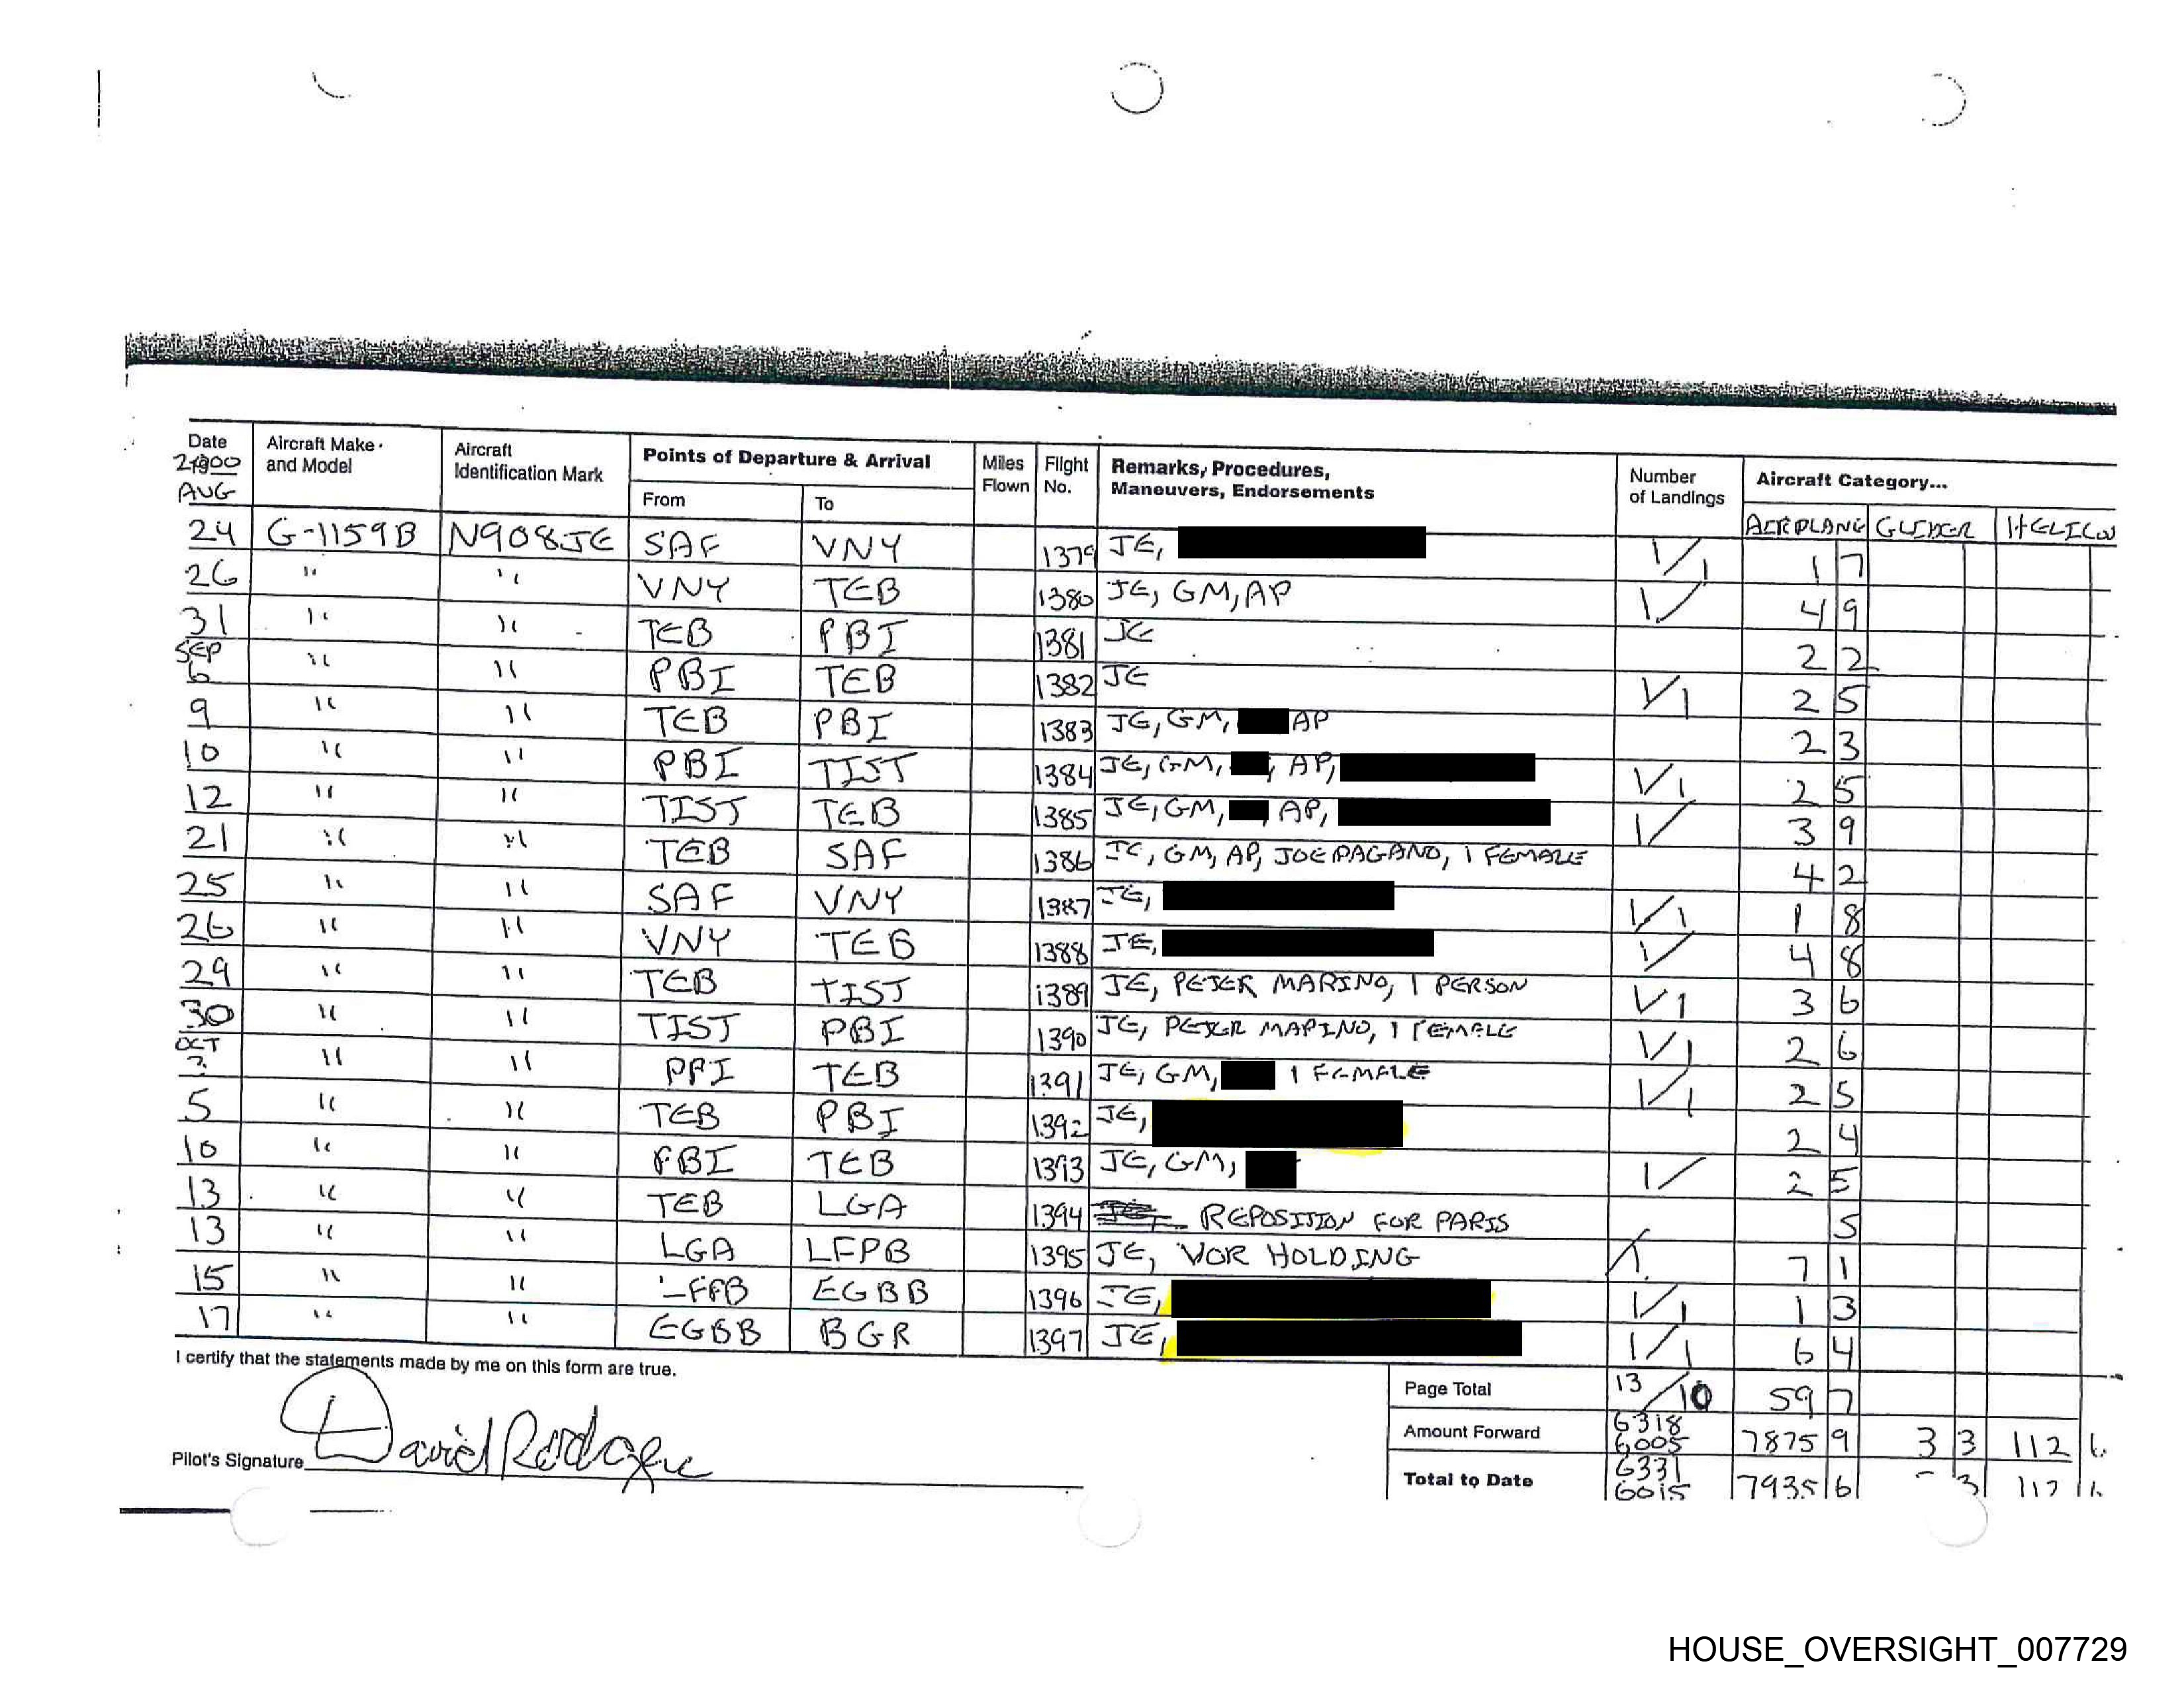 Date Aircraft Make and Model Aircraft Identification Mark Points of Departure & Arrival Miles Flown Flight No. Remarks, Procedures, Maneuvers, Endorsements Number of Landings Aircraft Category...
AUG From To AEROPLANE GLIDER
24 G-1159B N908JE SAF VNY 1379 JE, 1/1 1 7
26 " " VNY TEB 1380 JE, GM, AP 1/ 4 9
31 " " TEB PBI 1381 JE 2 2
SEP
6 " " PBI TEB 1382 JE 1/1 2 5
9 " " TEB PBI 1383 JE, GM, AP 2 3
10 " " PBI TIST 1384 JE, GM, , AP, 1/1 2 5
12 " " TIST TEB 1385 JE, GM, , AP, 1/ 3 9
21 " " TEB SAF 1386 JE, GM, AP, JOE PAGANO, 1 FEMALE 4 2
25 " " SAF VNY 1387 JE, 1/1 1 8
26 " " VNY TEB 1388 JE, 1/ 4 8
29 " " TEB TIST 1389 JE, PETER MARINO, 1 PERSON 1/1 3 6
30 " " TIST PBI 1390 JE, PETER MARINO, 1 FEMALE 1/1 2 6
OCT
" " PBI TEB 1391 JE, GM, 1 FEMALE 1/1 2 5
5 " " TEB PBI 1392 JE, 2 4
10 " " PBI TEB 1393 JE, GM, 1/ 2 5
13 " " TEB LGA 1394 REPOSITION FOR PARIS 5
13 " " LGA LFPB 1395 JE, VOR HOLDING 7 1
15 " " EGBB 1396 JE, 1/1 1 3
17 " " EGBB BGR 1397 JE, 1/1 6 4
I certify that the statements made by me on this form are true.
Page Total 13/10 59 7
Amount Forward 6318 6005 7875 9 3 3 112
Total to Date 6331 6015 7935 6 3
Pilot's Signature David Rodgers
HOUSE_OVERSIGHT_007729